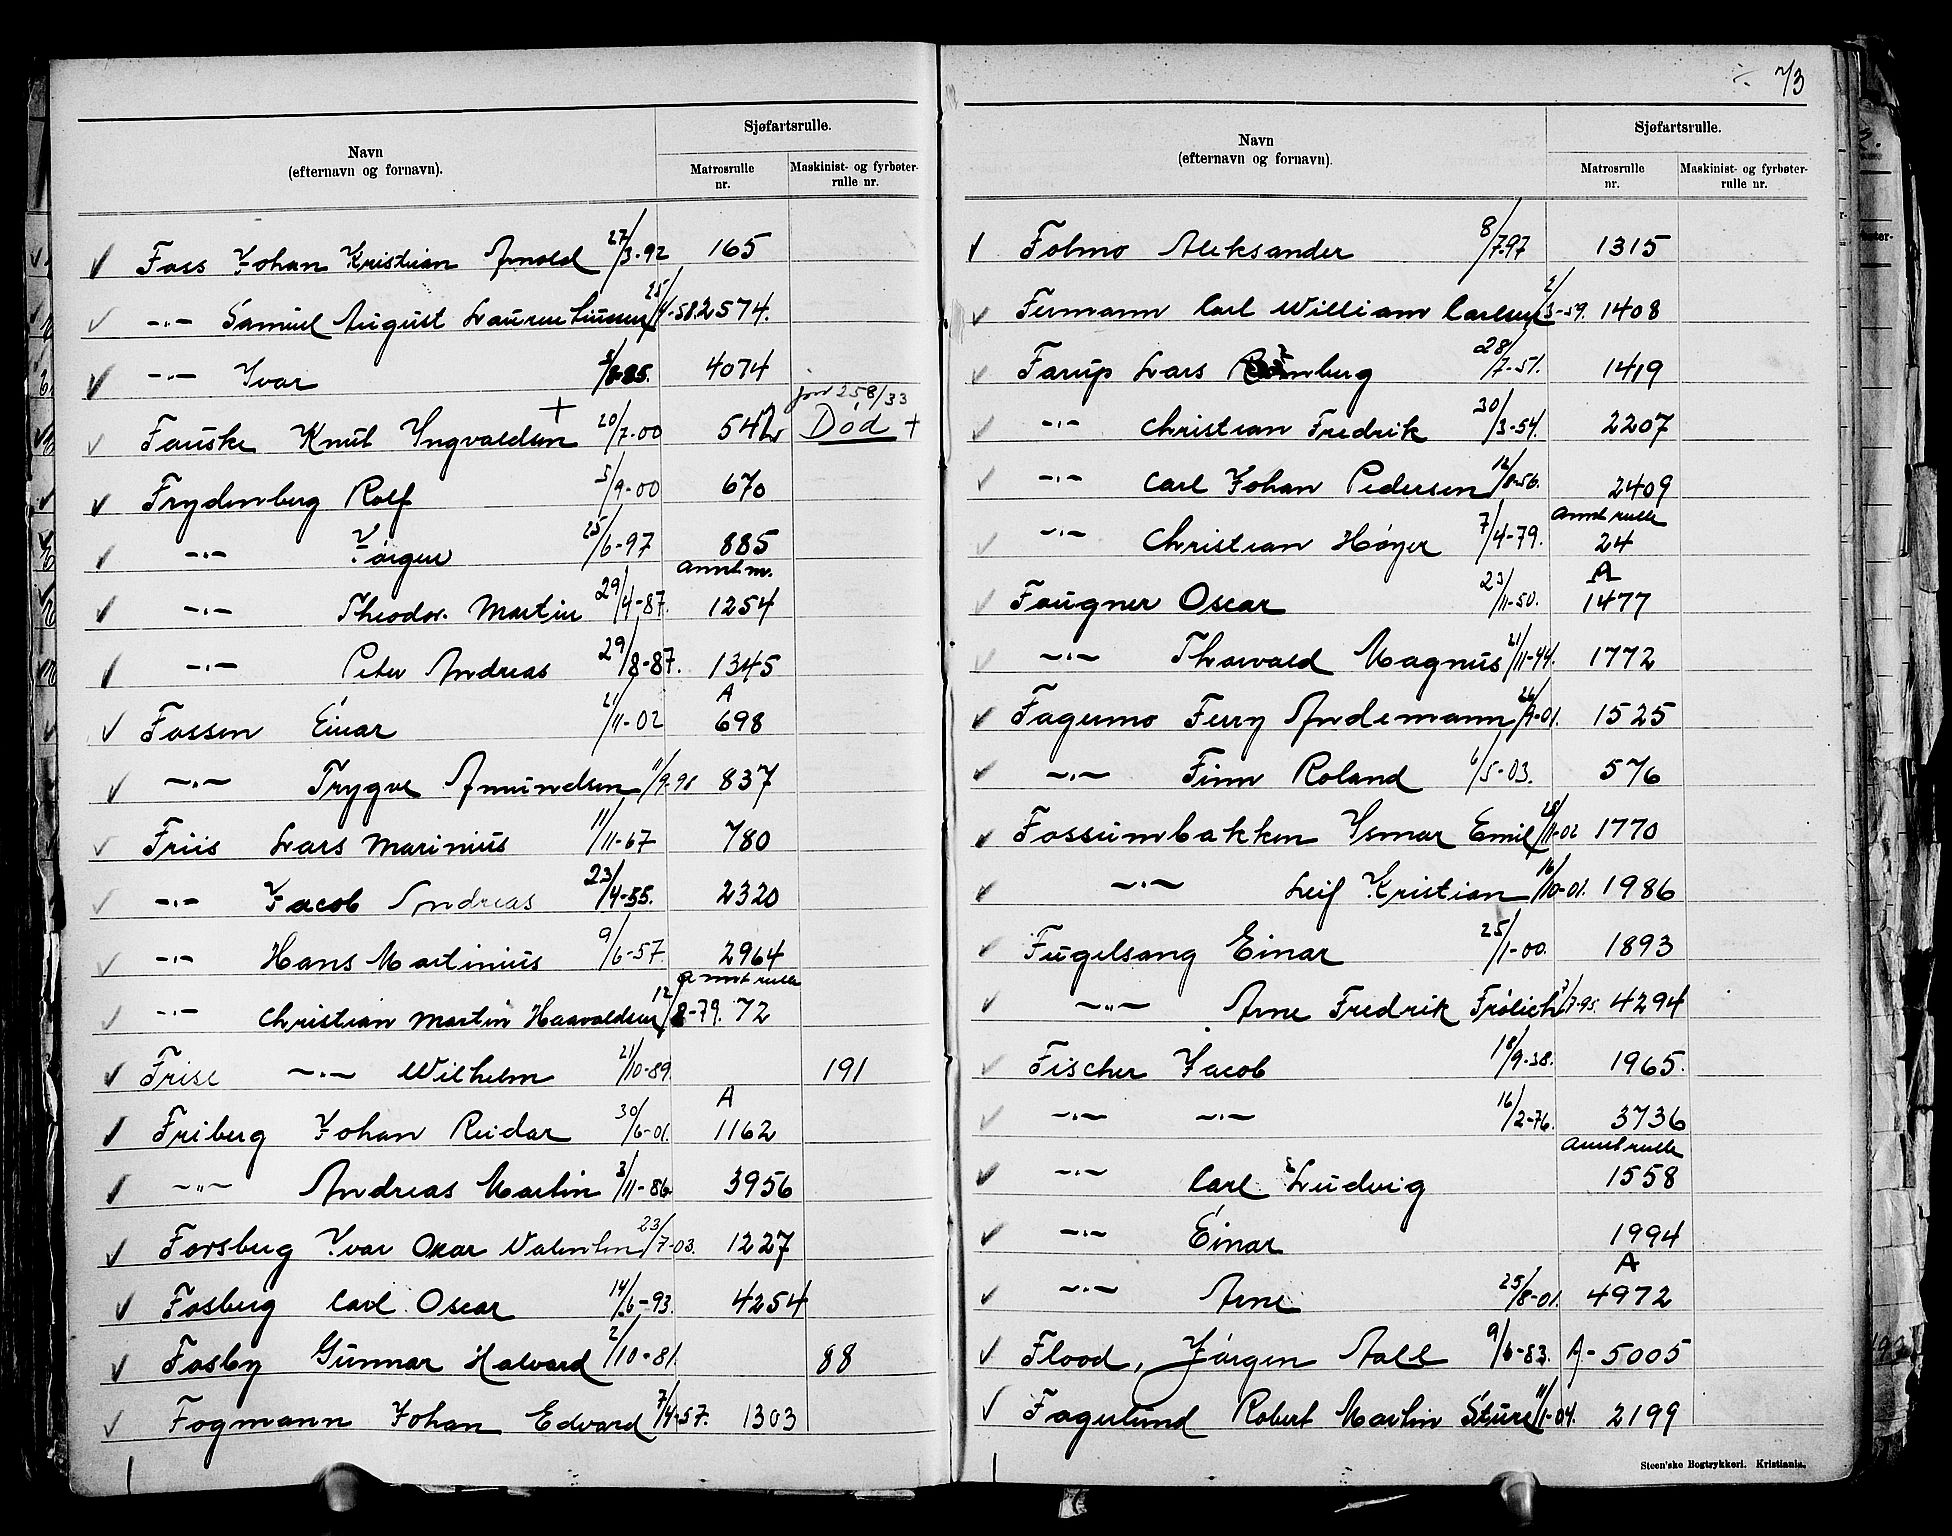 Navn
(efternavn og fornavn).
Sjøfartsrulle.
Matrosrulle nr.
Maskinist- og fyrbøter-rulle nr.
Foss Johan Kristian Arnold 27/3-92 165
-"- Samuel August Laurentiussen 25/4-58 2574.
-"- Ivar 85. 4074
Fauske Knut Ingvaldsen + 20/7-00 542 Død +
Frydenberg Rolf 5/9-00 670
-"- Jørgen 25/6-97 885
-"- Theodor Martin 29/4-87. annt nr. 1254
-"- Peter Andreas 29/8-87. 1345
Fossen Einar 21/11-02 A 698
-"- Trygve Amundsen 11/9-98 837
Friis Lars Marinius 11/11-67 780
-"- Jacob Andreas 23/4-55. 2320
-"- Hans Martinius 9/6-57. 2964
-"- Christian Martin Haavaldsen 12/8-79. annt rulle 72
Frise -"- Wilhelm 21/10-89. 191
Friberg Johan Reidar 30/6-01. A 1162
-"- Andreas Martin 3/11-86. 3956
Forsberg Ivar Oscar Valentin 23/7-03. 1227
Fosberg Carl Oscar 14/6-93. 4254
Fosby Gunnar Halvard 2/10-81. 88
Fogmann Johan Edvard 7/4-57. 1303
73
Navn
(efternavn og fornavn).
Sjøfartsrulle.
Matrosrulle nr.
Maskinist- og fyrbøter-rulle nr.
Folmo Aleksander 8/7-97 1315
Fermann Carl William Carlsen 2/3-59. 1408
Farup Lars 28/7-51. 1419
-"- Christian Fredrik 30/3-54. 2207
-"- Carl Johan Pedersen 12/8-56. 2409
-"- Christian Høyer 7/4-79. annt rulle 24
Faugner Oscar 23/11-50. A 1477
-"- Thorvald Magnus 21/11-44. 1772
Fagermo Ferry Andemann 26/9-01. 1525
-"- Finn Roland 6/5-03. 576
Fossumbakken Ismar Emil 28/11-02 1770
-"- Leif Kristian 16/10-01. 1986
Fugelsang Einar 25/1-00. 1893
-"- Arne Fredrik Frølich 3/7-95. 4294
Fischer Jacob 18/9-38. 1965.
-"- -"- 16/2-76. 3736
-"- Carl Ludvig annt rulle 1558
-"- Einar 1994
-"- Arne 25/8-01. A 4972
Flood, Jørgen Aall 9/6-83. A- 5005
Fagerlund Robert Martin Sture 11/1-04. 2199
Steen'ske Bogtrykkeri. Kristiania.